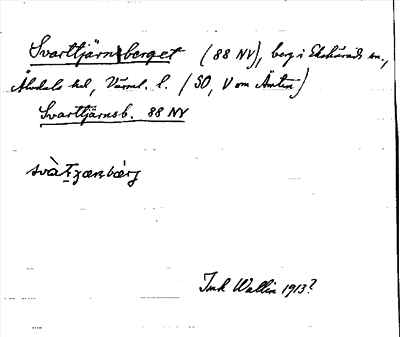 Svarttjärnsberget (88 NV), berg i Ekshärads sn.,
Älvdals hd, Värml. l. (SO, V om Ämten)
Svarttjärnsb. 88 NV
Wallin 1913?